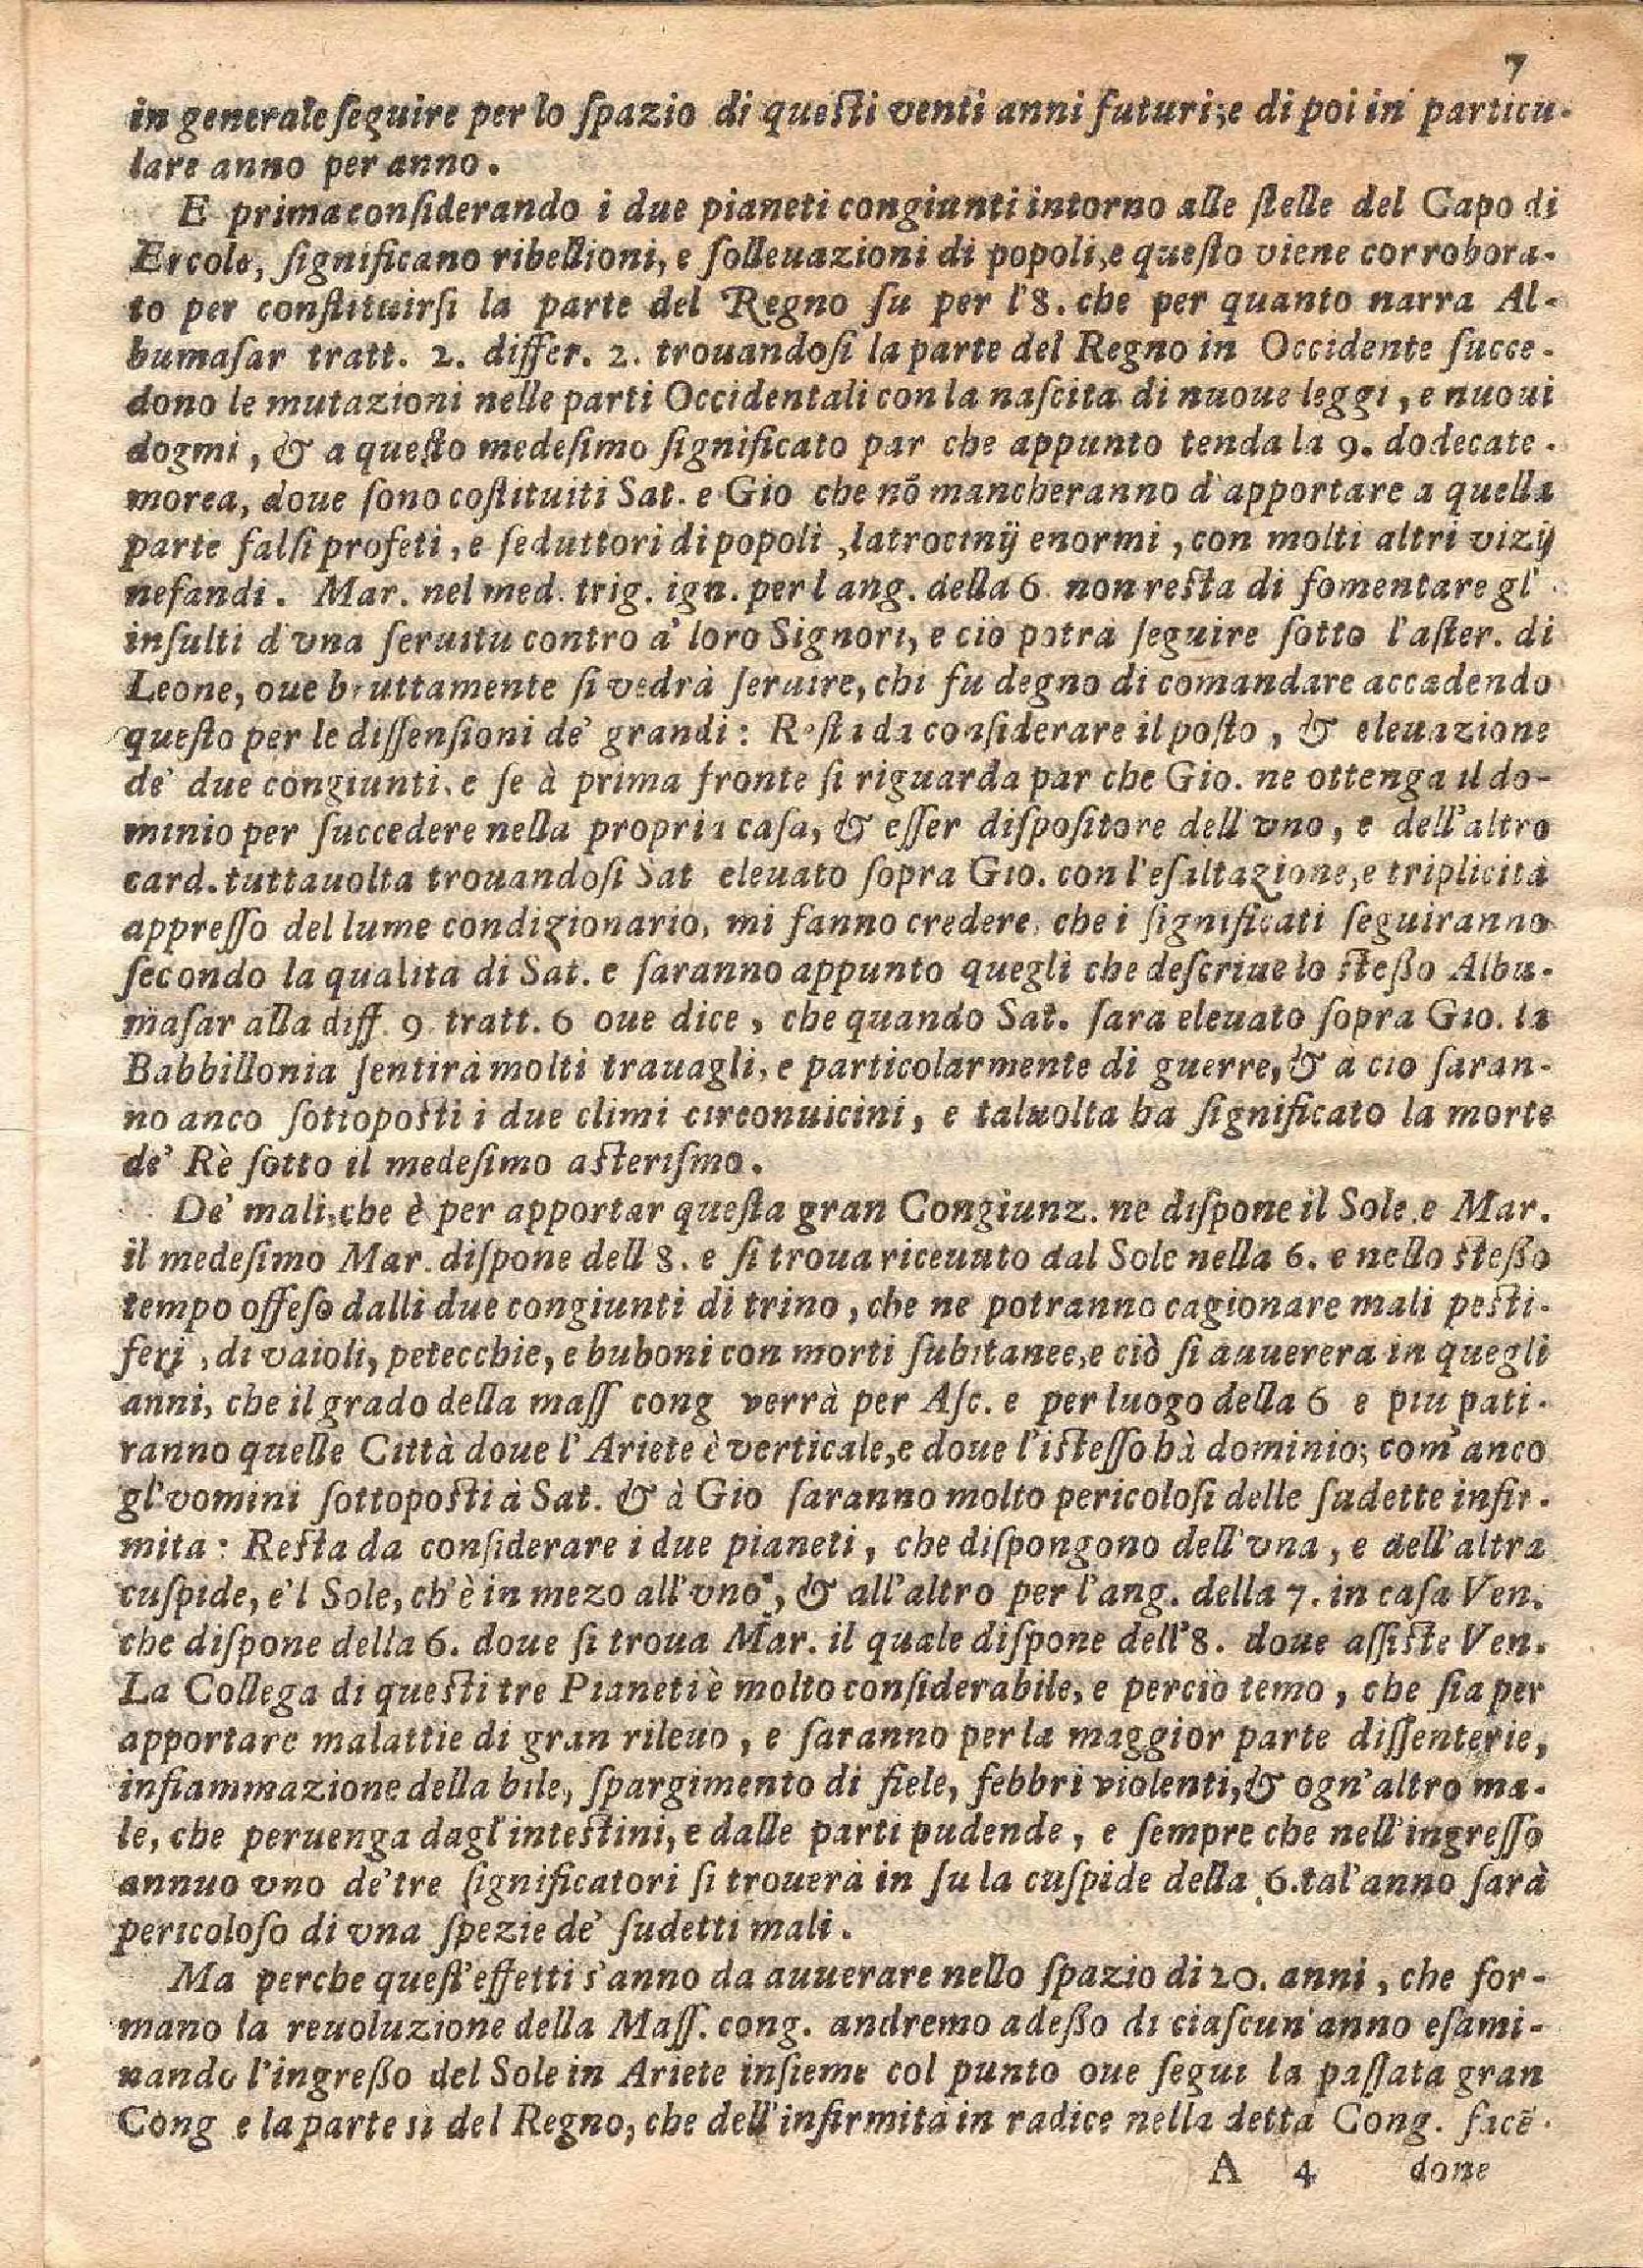 7
in generale ſeguire per lo ſpazio di queſti venti anni futuri; e di poi in particu-
lare anno per anno.
E prima conſiderando i due pianeti congiunti intorno alle ſtelle del Capo di
Ercole, ſignificano ribellioni, e ſolleuazioni di popoli, e queſto viene corrobora-
to per conſtituirſi la parte del Regno ſu per l'8. che per quanto narra Al-
bumaſar tratt. 2. differ. 2. trouandoſi la parte del Regno in Occidente ſucce-
dono le mutazioni nelle parti Occidentali con la naſcita di nuoue leggi, e nuoui
dogmi, & a queſto medeſimo ſignificato par che appunto tenda la 9. dodecate-
morea, doue ſono coſtituiti Sat. e Gio che nō mancheranno d'apportare a quella
parte falſi profeti, e ſeduttori di popoli, latrocinij enormi, con molti altri vizij
nefandi. Mar. nel med. trig. ign. per l ang. della 6 non reſta di fomentare gl'
inſulti d'vna ſeruitu contro a' loro Signori, e cio potrà ſeguire ſotto l'aſter. di
Leone, oue bruttamente ſi vedrà ſeruire, chi fu degno di comandare accadendo
queſto per le diſſenſioni de' grandi: Reſta da conſiderare il poſto, & eleuazione
de' due congiunti, e ſe à prima fronte ſi riguarda par che Gio. ne ottenga il do-
minio per ſuccedere nella propria caſa, & eſſer diſpoſitore dell'vno, e dell'altro
card. tuttauolta trouandoſi Sat eleuato ſopra Gio. con l'eſaltazione, e triplicità
appreſſo del lume condizionario, mi fanno credere, che i ſignificati ſeguiranno
ſecondo la qualità di Sat. e ſaranno appunto quegli che deſcriue lo ſteßo Albu-
maſar alla diff. 9 tratt. 6 oue dice, che quando Sat. ſara eleuato ſopra Gio. la
Babbillonia ſentirà molti trauagli, e particolarmente di guerre, & a cio ſaran-
no anco ſottopoſti i due climi circonuicini, e taluolta ha ſignificato la morte
de' Rè ſotto il medeſimo aſteriſmo.
De' mali, che è per apportar queſta gran Congiunz. ne diſpone il Sole, e Mar.
il medeſimo Mar. diſpone dell 8. e ſi troua riceuuto dal Sole nella 6. e nello ſteßo
tempo offeſo dalli due congiunti di trino, che ne potranno cagionare mali peſti-
feri, di vaioli, petecchie, e buboni con morti ſubitanee, e ciò ſi auuerera in quegli
anni, che il grado della maſſ cong verrà per Aſc. e per luogo della 6 e piu pati-
ranno quelle Città doue l'Ariete è verticale, e doue l'iſteſſo hà dominio; com'anco
gl'vomini ſottopoſti à Sat. & à Gio ſaranno molto pericoloſi delle ſudette infir-
mita: Reſta da conſiderare i due pianeti, che diſpongono dell'vna, e dell'altra
cuſpide, e'l Sole, ch'è in mezo all'vno, & all'altro per l'ang. della 7. in caſa Ven.
che diſpone della 6. doue ſi troua Mar. il quale diſpone dell'8. doue aſſiſte Ven.
La Collega di queſti tre Pianeti è molto conſiderabile, e perciò temo, che ſia per
apportare malattie di gran rileuo, e ſaranno per la maggior parte diſſenterie,
infiammazione della bile, ſpargimento di fiele, febbri violenti, & ogn'altro ma-
le, che peruenga dagl'inteſtini, e dalle parti pudende, e ſempre che nell'ingreſſo
annuo vno de' tre ſignificatori ſi trouerà in ſu la cuſpide della 6. tal'anno ſarà
pericoloſo di vna ſpezie de' ſudetti mali.
Ma perche queſt'effetti s'anno da auuerare nello ſpazio di 20. anni, che for-
mano la reuoluzione della Maſſ. cong. andremo adeßo di ciaſcun'anno eſami-
nando l'ingreßo del Sole in Ariete inſieme col punto oue ſegui la paſſata gran
Cong e la parte sì del Regno, che dell'infirmità in radice nella detta Cong. facē-
A 4 done